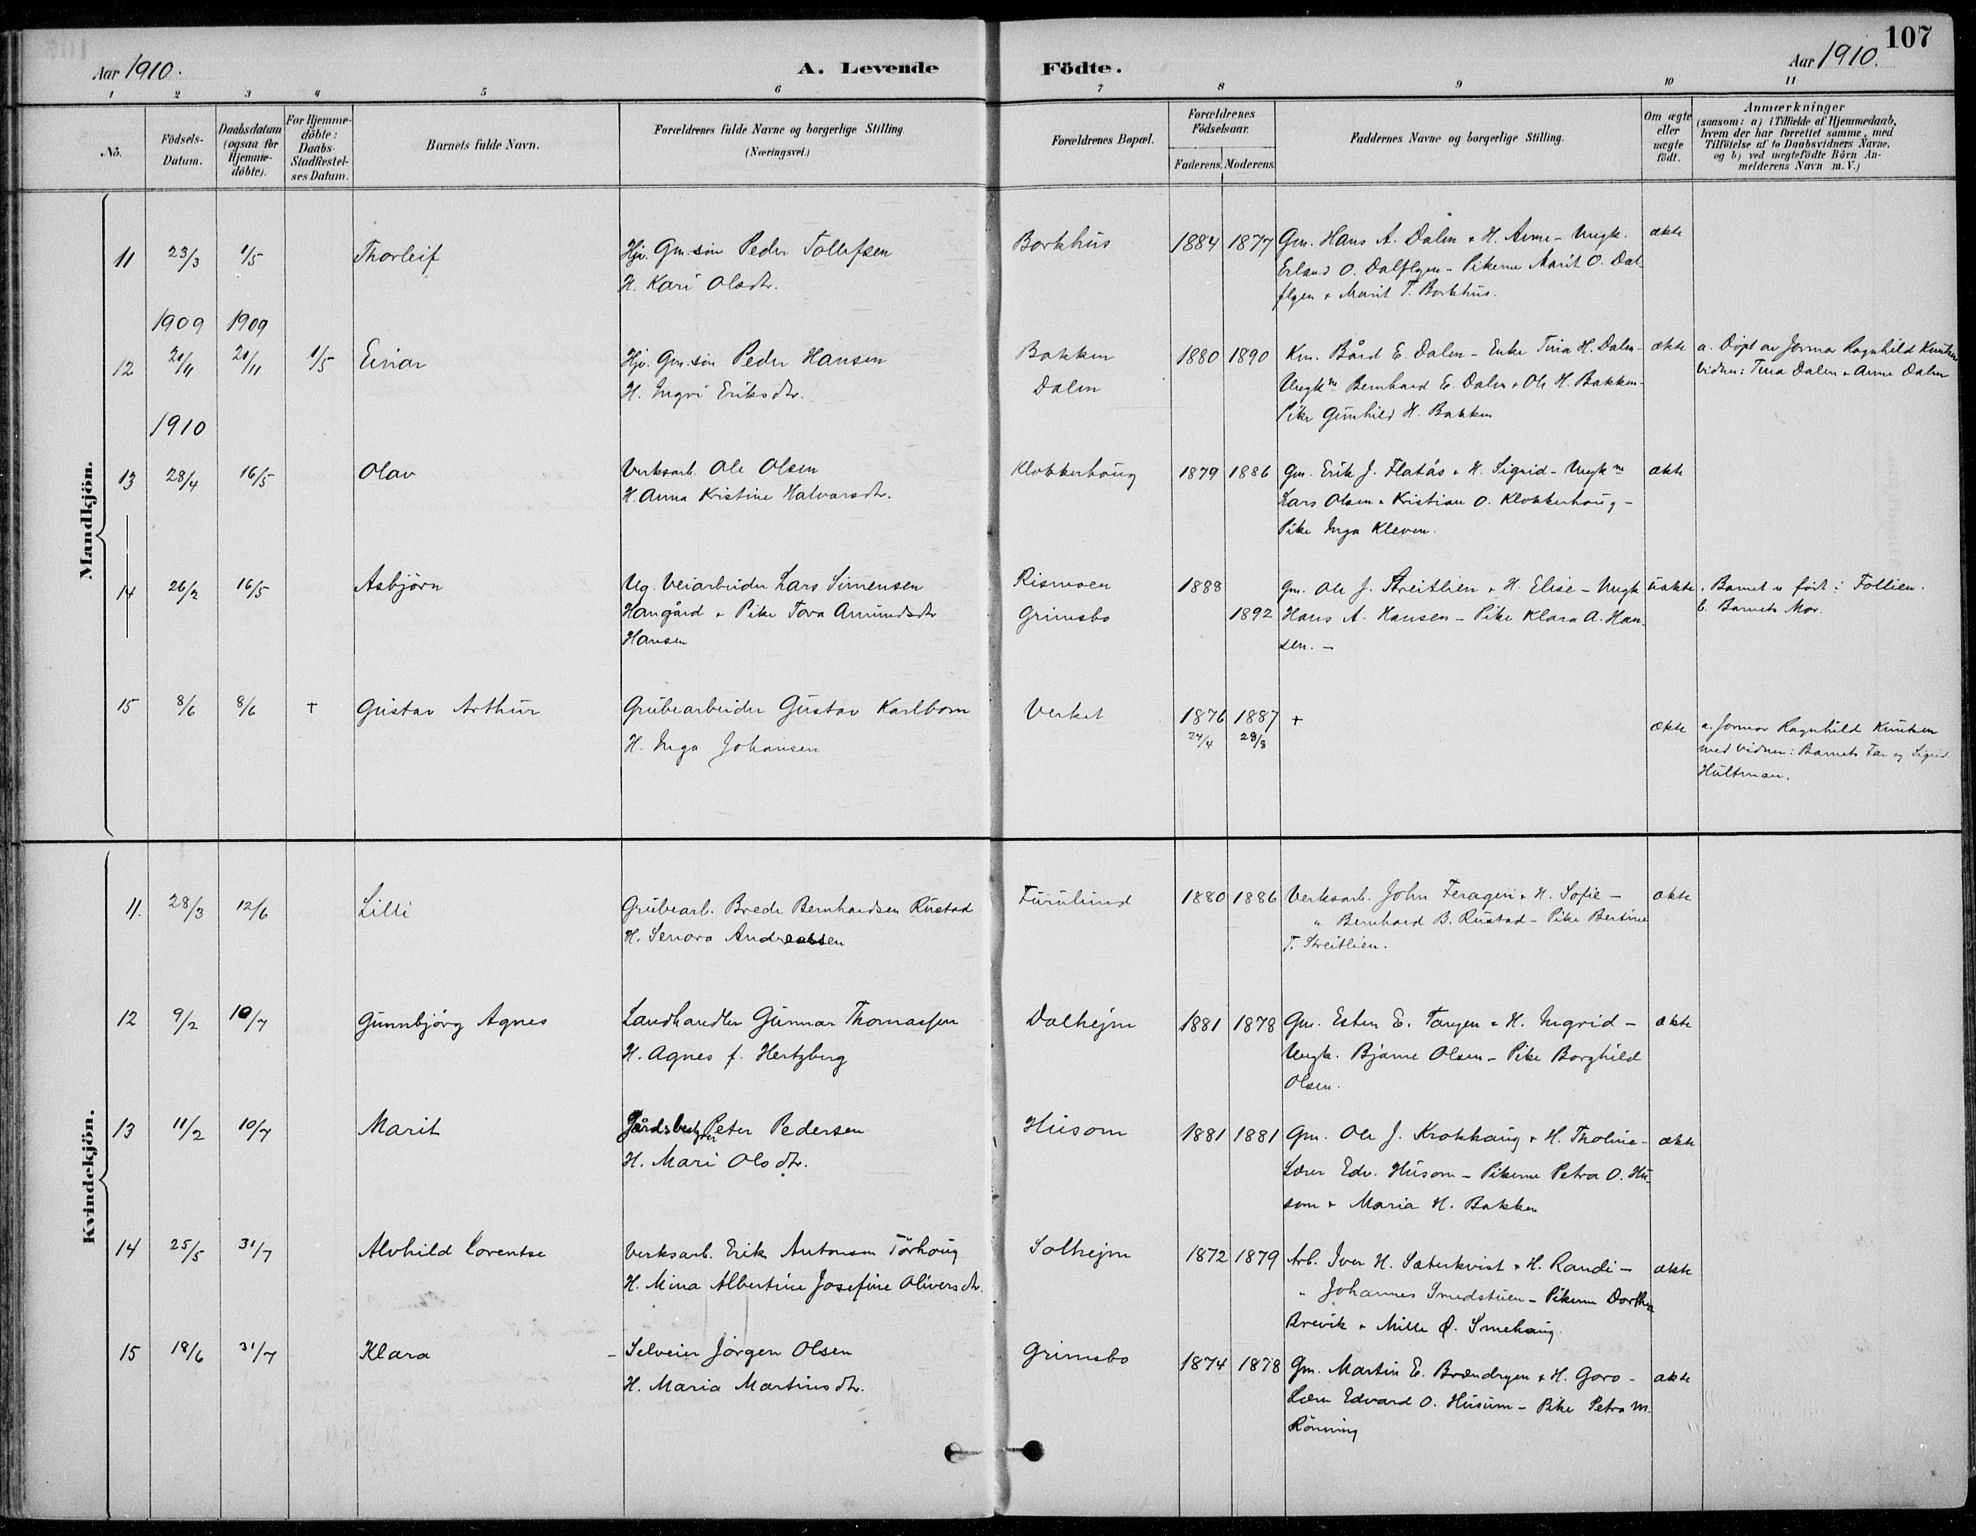 107
Aar 1910.
A. Levende Födte.
Aar 1910.
1 2 3 4 5 6 7 8 9 10 11
No.
Födsels-Datum.
Daabsdatum (ogsaa for Hjemme-döbte).
For Hjemme-döbte: Daabs-Stadfestel-ses Datum.
Barnets fulde Navn.
Forældrenes fulde Navne og borgerlige Stilling.
(Næringsvei.)
Forældrenes Bopæl.
Forældrenes Födselsaar.
Faderens. Moderens.
Faddernes Navne og borgerlige Stilling.
Om ægte eller uægte födt.
Anmærkninger
(saasom: a) i Tilfælde af Hjemmedaab,
hvem der har forrettet samme, med
Tilföielse af to Daabsvidners Navne,
og b) ved uægtefödte Börn An-
melderens Navn m.V.)
Mandkjön.
11 23/3 1/5 Thorleif Hjv. Gm.sön Peder Tollefsen Borkhus 1884 1877 Gm. Hans A. Dalen + H. Anne - Ungk. ekte
H. Kari Olsdtr. Erland O. Dalflyen - Pikerne Marit O. Dal-
flyen + Marit T. Borkhus.
1909 1909
12 21/11 1/5 Einar Hjv. Gm.sön Peder Hansen Bakken 1880 1890 Km. Bård E. Dalen - Enke Tina H. Dalen- ekte a. Döpt av Jormor Ragnhild Knutsen
H. Ingri Eriksdtr. Dalen Ungkm Bernhard E. Dalen + Ole H. Bakken- Vidner: Tina Dalen + Anne Dalen
Pike Gunhild H. Bakken
1910
13 28/4 16/5 Olav Verksarb. Ole Olsen Klokkerhoug 1879 1886 Gm. Erik J. Flatås + H. Sigrid - Ungkne ekte
H. Anna Kristine Halvarsdtr. Lars Olsen + Kristian O. Klokkerhoug -
Pike Inga Kleven.
14 26/2 16/5 Asbjörn Ug. Veiarbeider Lars Simensen Rismoen 1888 Gm. Ole J. Streitlien + H. Elise - Ungk. uækte Barnet er födt i Follien.
Haugård + Pike Tora Amundsdtr Grimsbo 1892 Hans A. Hansen - Pike Klara A. Han- b. Barnets Mor.
Hansen sen. -
15 8/6 8/6 + Gustav Arthur Grubearbeider Gustav Karlbom Verket 1876 1887 + ekte a. Jormor Ragnhild Knutsen
H. Inga Johansen 24/4 28/8 med vidner: Barnets Far og Sigrid
Hultman.
Kvindekjön.
11. 28/3 12/6 Lilli Grubearb. Brede Bernhardsen Rustad Furulund 1880 1886 Verksarb. John Feragen + H. Sofie - ekte
H. Senora Andreassen " Bernhard B. Rustad - Pike Bertine
T. Streitlien.
12 9/2 10/7 Gunnbjörg Agnes Landhandler Gunnar Thomassen Dalhejm 1881 1878 Gm. Esten E. Tangen + H. Ingrid - ekte
H. Agnes f. Hertzberg Ungk. Bjarne Olsen - Pike Borghild
Olsen.
13 11/2 10/7 Marit Gårdsbestyrer Peter Pedersen Husom 1881 1881 Gm. Ole J. Krokhaug + H. Tholine - ekte
H. Mari Olsdtr. Lærer Edv. Husom - Pikerne Petra O. Hu-
som + Maria H. Bakken
14 25/5 31/7 Alvhild Lorentse Verksarb. Erik Antonsen Törhoug Solhejm 1872 1879 Arb. Iver H. Sæterkvist + H. Randi - ekte
H. Mina Albertine Josefine Oliversdtr. " Johannes Smedstuen - Pikerne Dorthea
Brevik + Mille Ø. Smehaug.
15 18/6 31/7 Klara - Selveier Jörgen Olsen Grimsbo 1874 1878 Gm. Martin E. Brændryen + H. Goro - ekte
H. Maria Martinsdtr. Lærer Edvard O. Husum - Pike Petra M.
Rönning